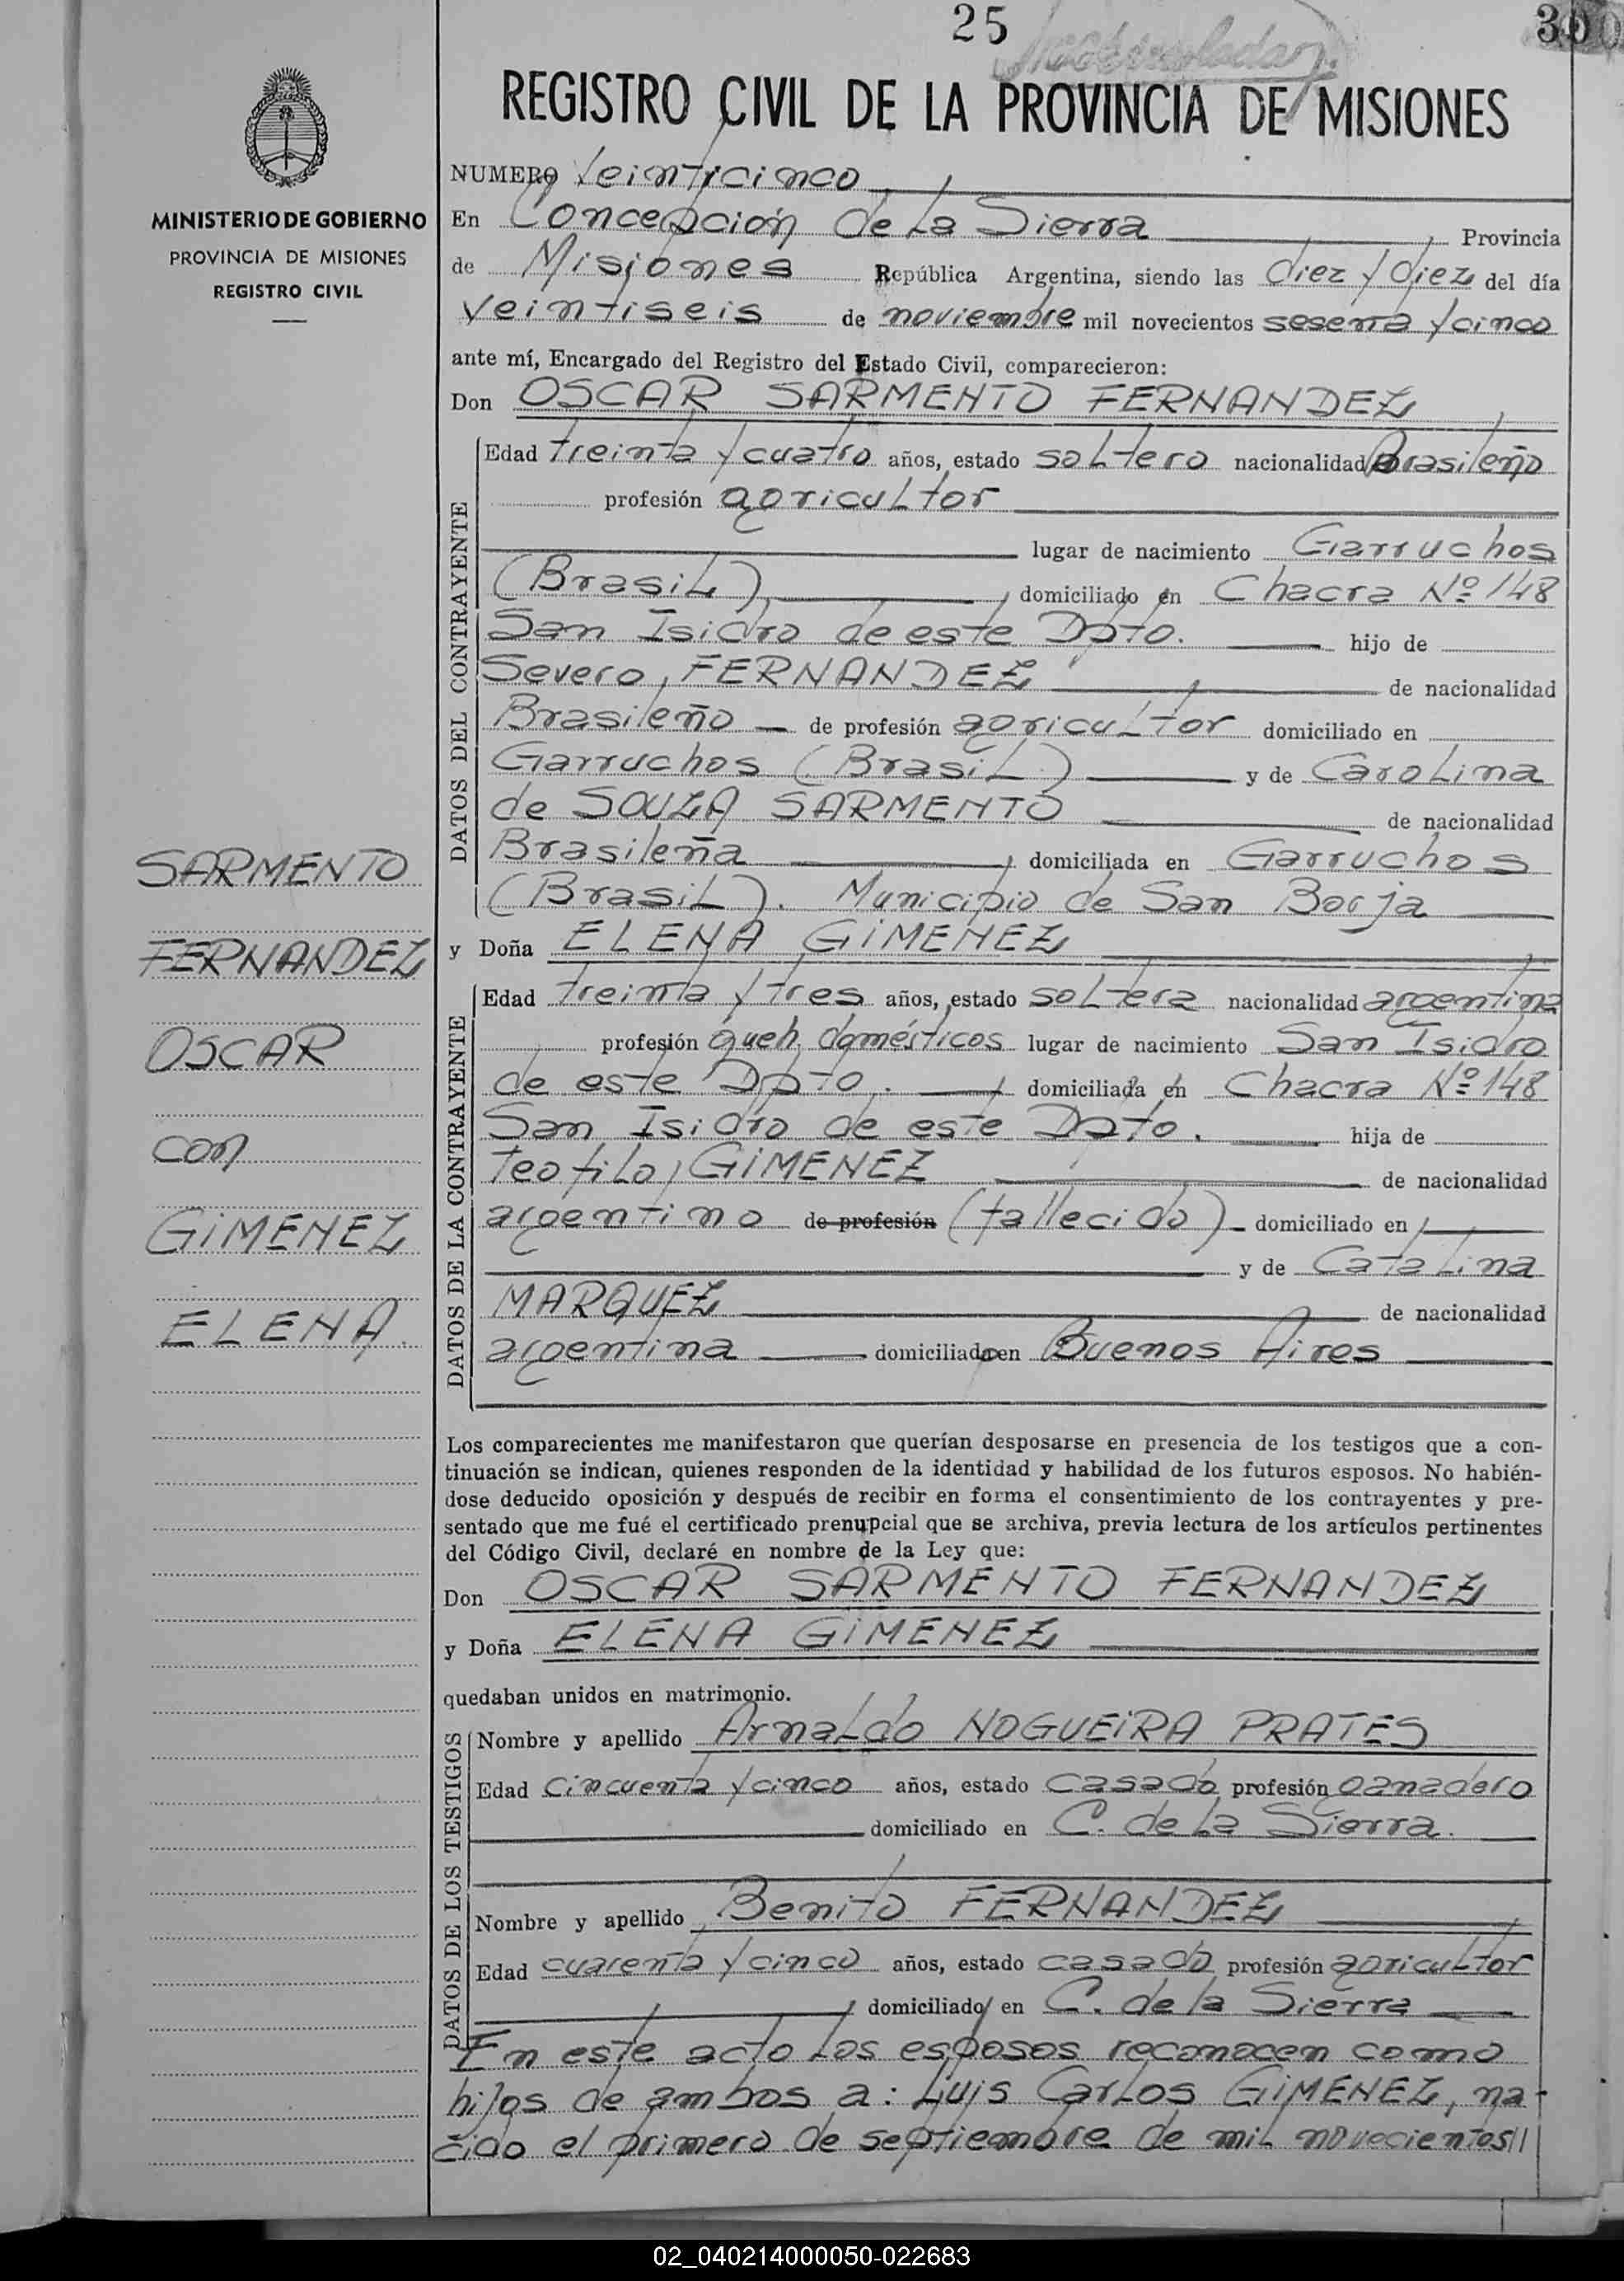 25
30
REGISTRO CIVIL DE LA PROVINCIA DE MISIONES
MINISTERIO DE GOBIERNO
PROVINCIA DE MISIONES
REGISTRO CIVIL
NUMERO Veinticinco
En Concepción de La Sierra Provincia
de Misiones República Argentina, siendo las diez y diez del día
veintiseis de noviembre mil novecientos sesenta y cinco
ante mí, Encargado del Registro del Estado Civil, comparecieron:
Don OSCAR SARMENTO FERNANDEZ
DATOS DEL CONTRAYENTE
Edad treinta y cuatro años, estado soltero nacionalidad Brasileño
profesión agricultor
lugar de nacimiento Garruchos
(Brasil), domiciliado en Chacra Nº 148
San Isidro de este Dpto. hijo de
Severo, FERNANDEZ de nacionalidad
Brasileño de profesión agricultor domiciliado en
Garruchos (Brasil) y de Carolina
de SOUZA SARMENTO de nacionalidad
Brasileña domiciliada en Garruchos
(Brasil). Municipio de San Borja
y Doña ELENA GIMENEZ
DATOS DE LA CONTRAYENTE
Edad treinta y tres años, estado soltera nacionalidad argentina
profesión queh. domésticos lugar de nacimiento San Isidro
de este Dpto. domiciliada en Chacra Nº 148
San Isidro de este Dpto. hija de
Teofilo, GIMENEZ de nacionalidad
argentino de profesión (fallecido) domiciliado en
y de Catalina
MARQUEZ de nacionalidad
argentina domiciliada en Buenos Aires
SARMENTO
FERNANDEZ
OSCAR
con
GIMENEZ
ELENA.
Los comparecientes me manifestaron que querían desposarse en presencia de los testigos que a con-
tinuación se indican, quienes responden de la identidad y habilidad de los futuros esposos. No habién-
dose deducido oposición y después de recibir en forma el consentimiento de los contrayentes y pre-
sentado que me fué el certificado prenupcial que se archiva, previa lectura de los artículos pertinentes
del Código Civil, declaré en nombre de la Ley que:
Don OSCAR SARMENTO FERNANDEZ
y Doña ELENA GIMENEZ
quedaban unidos en matrimonio.
DATOS DE LOS TESTIGOS
Nombre y apellido Arnaldo NOGUEIRA PRATES
Edad cincuenta y cinco años, estado casado profesión ganadero
domiciliado en C. de La Sierra.
Nombre y apellido Benito FERNANDEZ
Edad cuarenta y cinco años, estado casado profesión agricultor
domiciliado en C. de la Sierra
En este acto los esposos reconocen como
hijos de ambos a: Luis Carlos GIMENEZ, na-
cido el primero de septiembre de mil novecientos//
02_040214000050-022683